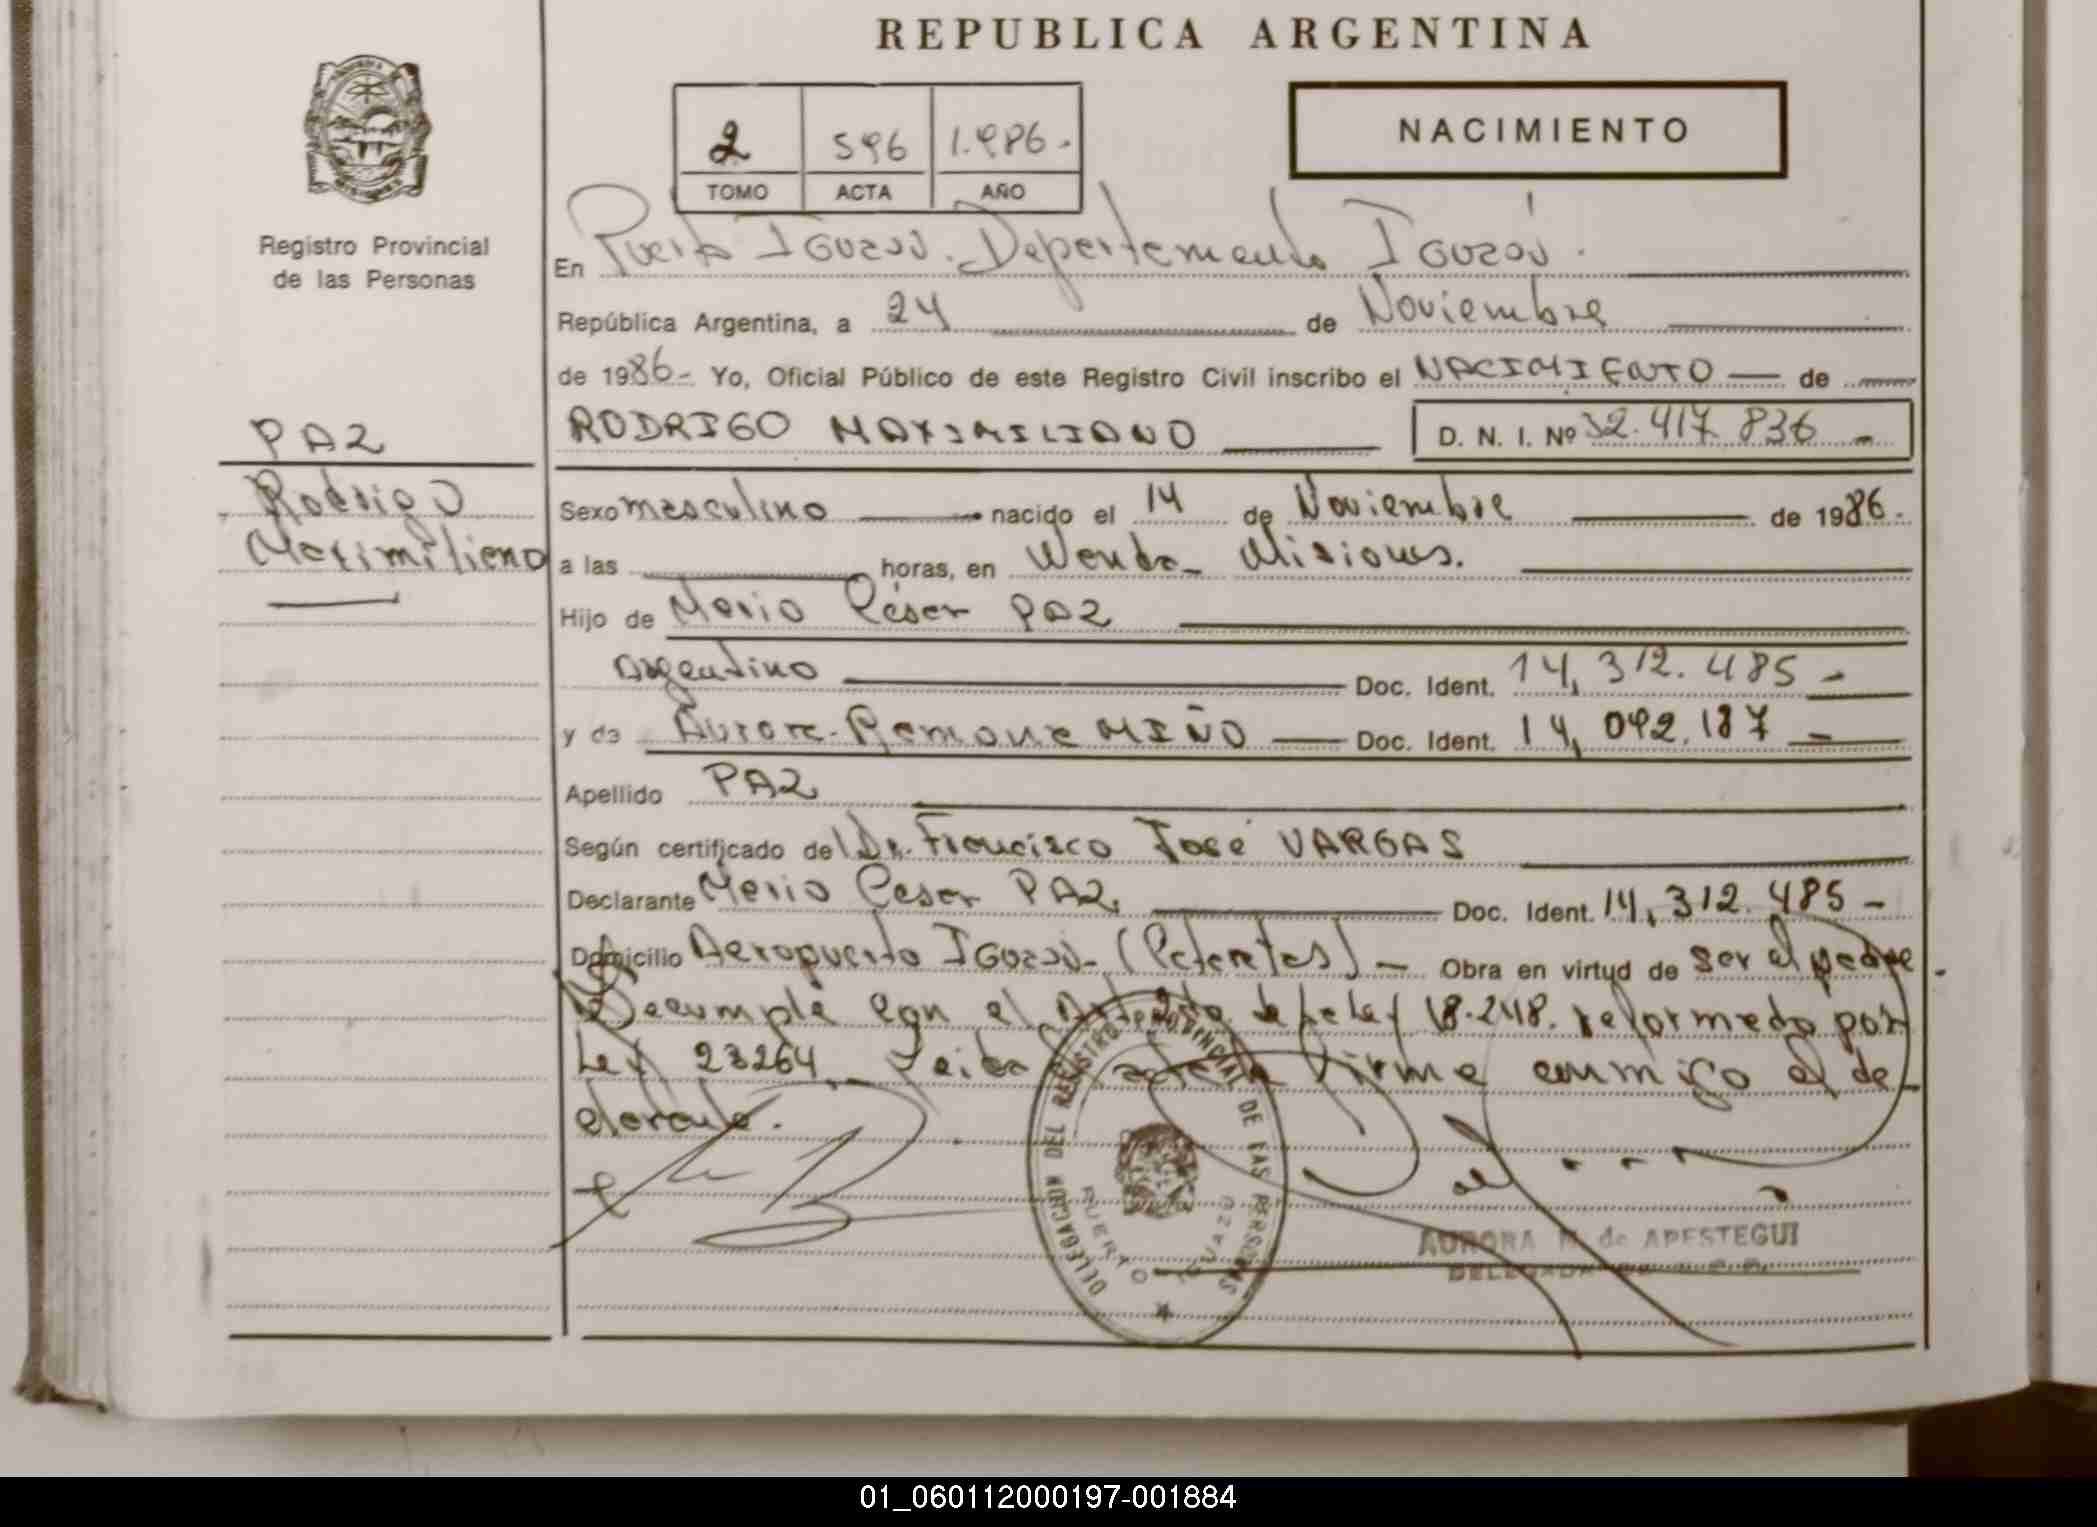 REPUBLICA ARGENTINA
2 596 1.986.-
TOMO ACTA AÑO
NACIMIENTO
Registro Provincial
de las Personas
PAZ
Rodrigo
Maximiliano
En Puerto Iguazú. Departamento Iguazú.
República Argentina, a 24 de Noviembre
de 1986- Yo, Oficial Público de este Registro Civil inscribo el NACIMIENTO — de
RODRIGO MAXIMILIANO D. N. I. Nº 32.417.836 -
Sexo masculino nacido el 14 de Noviembre de 1986.
a las horas, en Wanda- Misiones.
Hijo de Mario César PAZ
argentino Doc. Ident. 14,312.485 -
y de Aurora Ramona MIÑO — Doc. Ident. 14,092.187 -
Apellido PAZ
Según certificado del Dr. Francisco José VARGAS
Declarante Mario Cesar PAZ, Doc. Ident. 14,312.485 -
Domicilio Aeropuerto Iguazú- (Cataratas) - Obra en virtud de ser el padre.
Se cumple con el de la Ley 18.248. reformado por
Ley 23264. Leida firma conmigo el de-
clarante.
DELEGACION DEL REGISTRO PROVINCIAL DE LAS PERSONAS
PUERTO IGUAZU
AURORA M. de APESTEGUI
DELEGADA
01_060112000197-001884